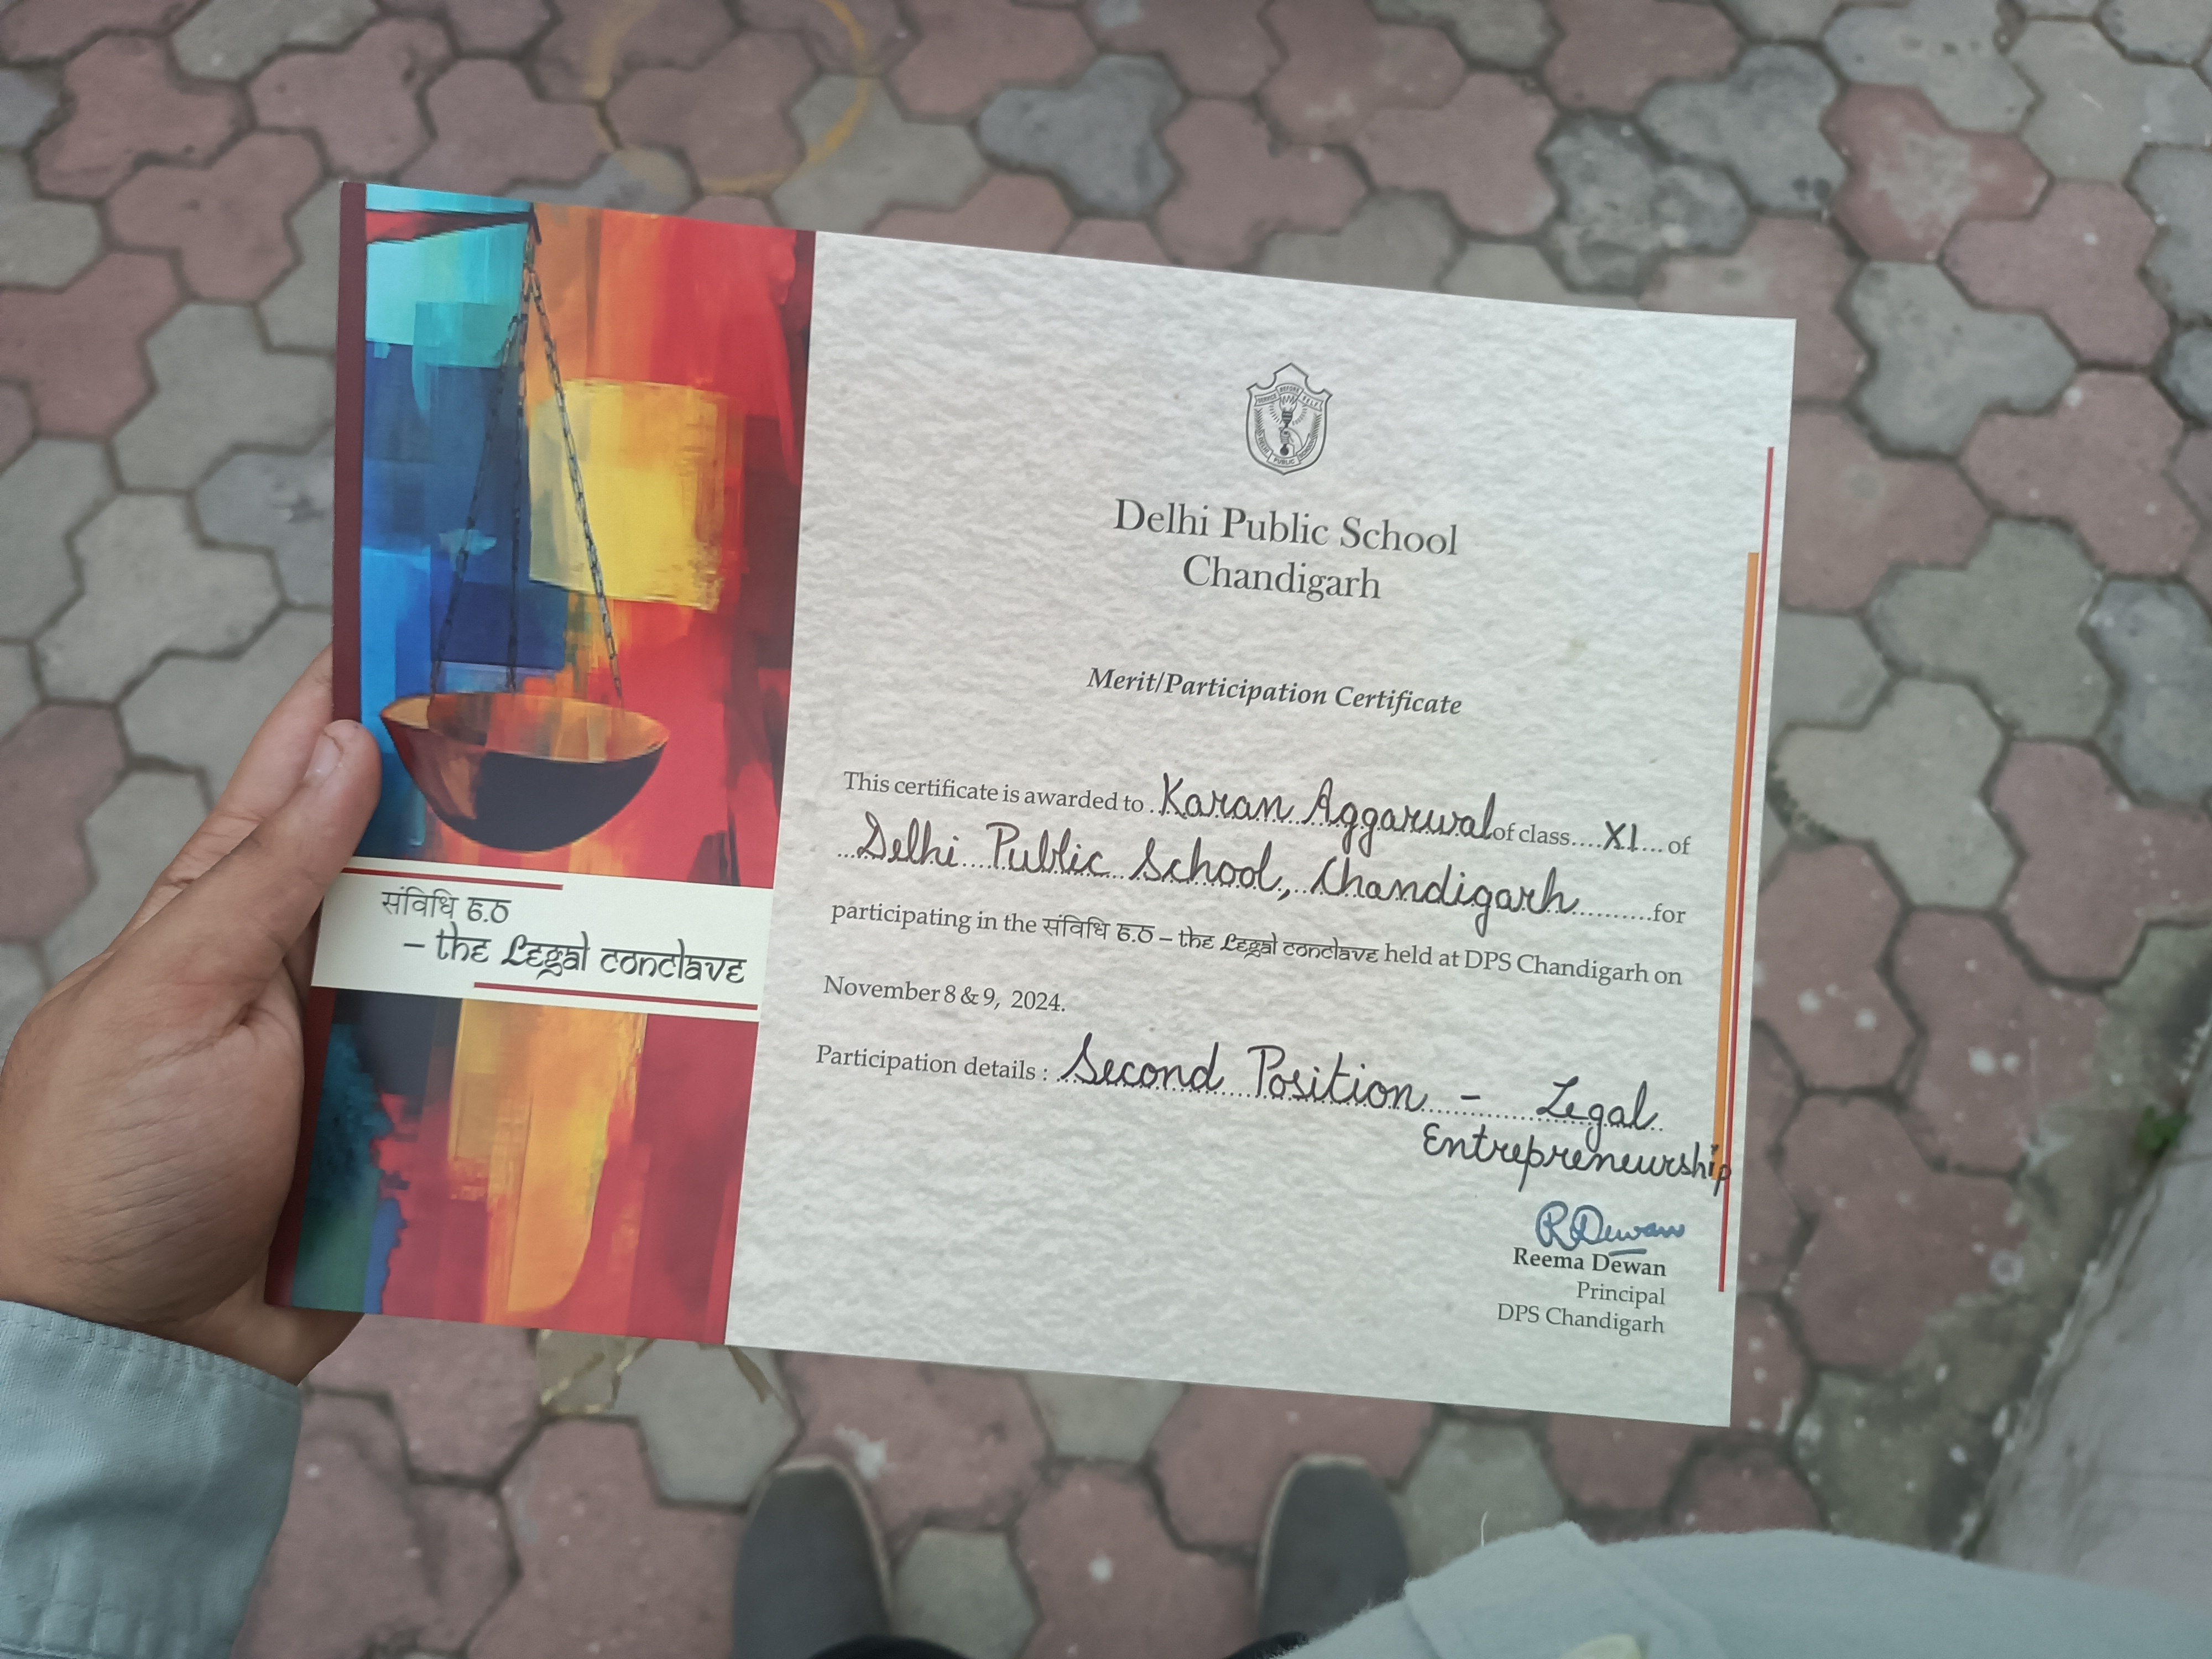 संविधि ६.०
– the Legal conclave
SERVICE BEFORE SELF
Delhi Public School
Chandigarh
Merit/Participation Certificate
This certificate is awarded to . Karan Aggarwal of class....XI... of
...Delhi Public School, Chandigarh..........for
participating in the संविधि ६.० – the Legal conclave held at DPS Chandigarh on
November 8 & 9, 2024.
Participation details : Second Position – Legal
Entrepreneurship
RDewan
Reema Dewan
Principal
DPS Chandigarh